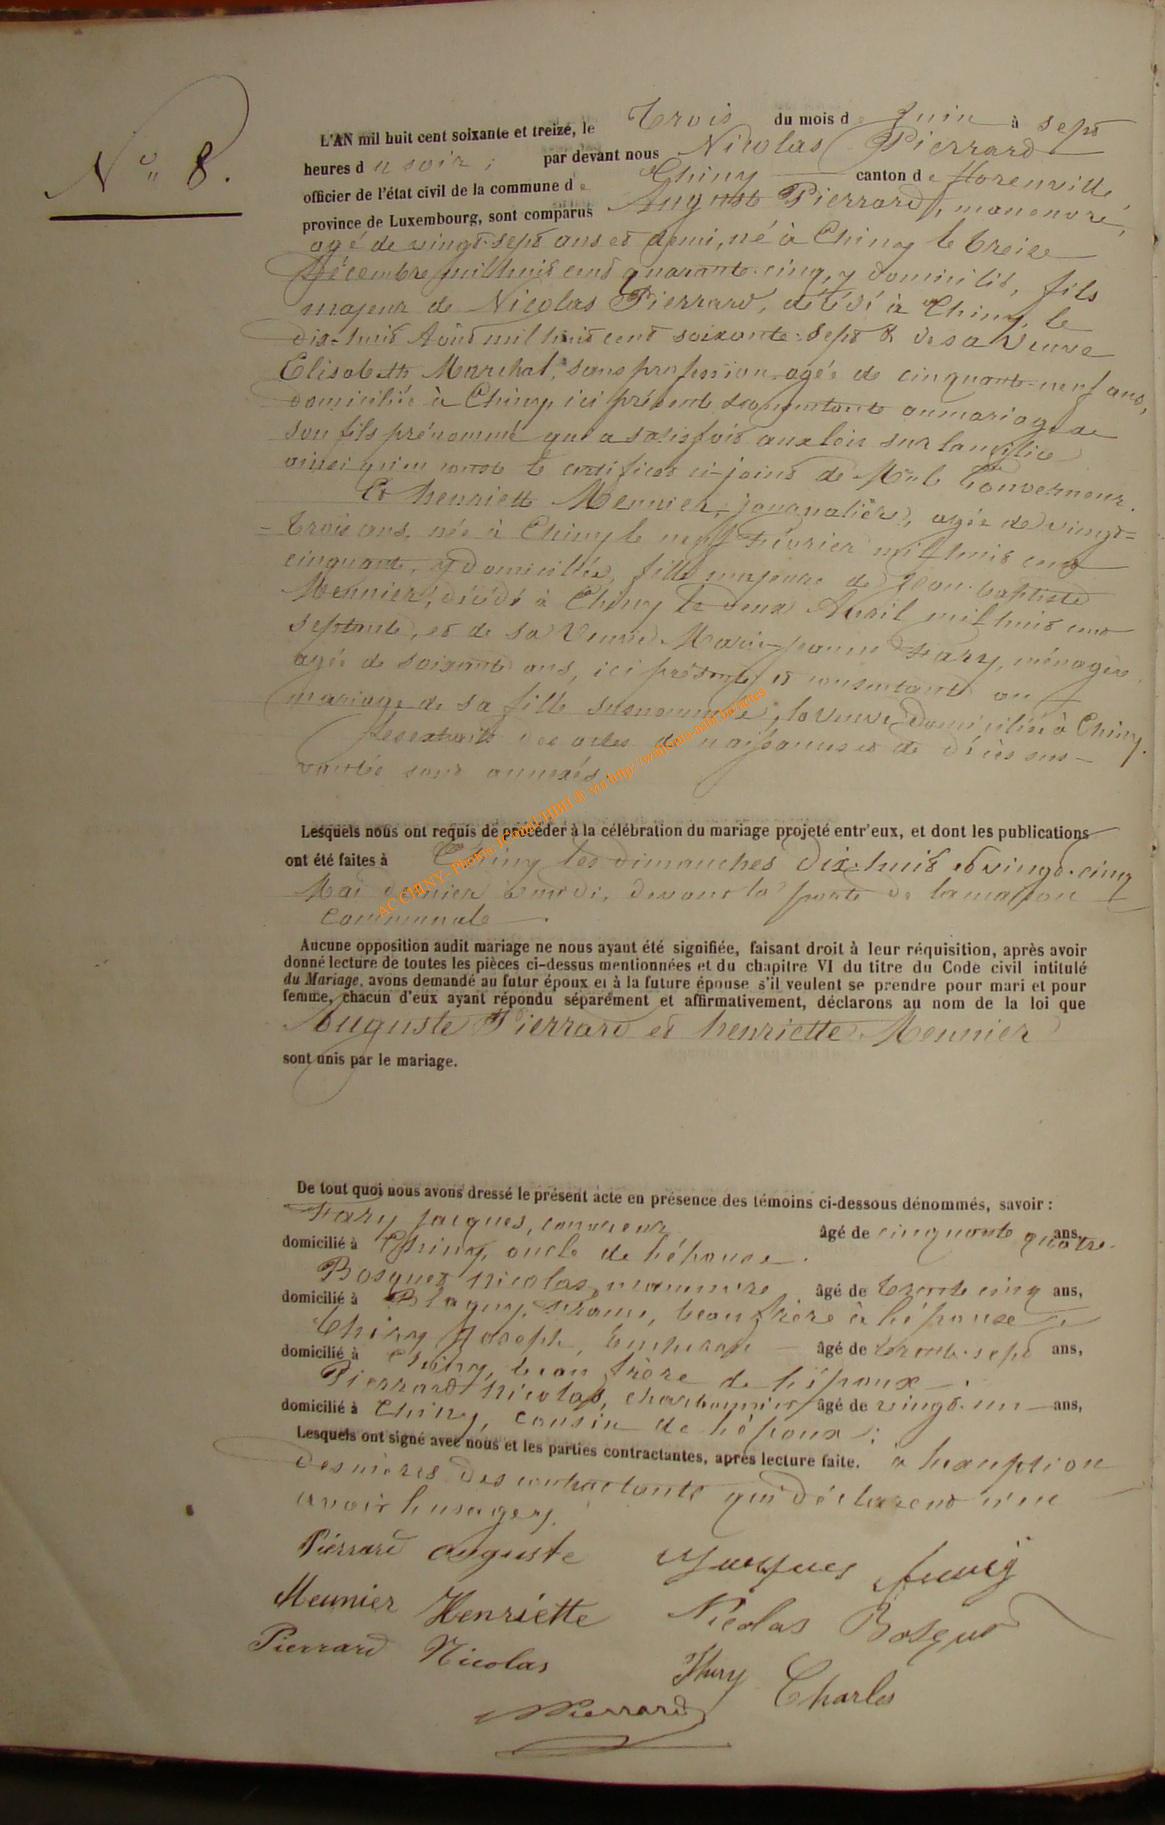 N° 8.
L'AN mil huit cent soixante et treize, le Trois du mois de Juin à sept
heures du soir ; par devant nous Nicolas Pierrard
officier de l'état civil de la commune de Chiny canton de florenville
province de Luxembourg, sont comparus Auguste Pierrard, manœuvre,
agé de vingt-sept ans et demi, né à Chiny le treize
Décembre mil huit cent quarante-cinq, y domicilié, fils
majeur de Nicolas Pierrard, décédé à Chiny, le
dix-huit Août mil huit cent soixante-sept & de sa Veuve
Elisabeth Maréchal, sans profession agée de cinquante-neuf ans,
domiciliée à Chiny, ici présente consentante au mariage de
son fils prénommé qui a satisfait aux lois sur la milice
ainsi qu'en conste le certificat ci-joint de Mr le Gouverneur.
Et henriette Meunier, journalière, agée de vingt=
trois ans, née à Chiny le neuf Février mil huit cent
cinquante, y domiciliée, fille majeure de Jean-baptiste
Meunier, décédé à Chiny le deux Avril mil huit cent
septante, et de sa Veuve Marie-jeanne Fary, ménagère
agée de soixante ans, ici présente et consentante au
mariage de sa fille susnommée, la veuve domiciliée à Chiny.
Les extraits des actes de naissances et de décès sus-
vantés sont annexés.
AC CHINY- Photos: (Const.HDH.® via http://wallonia-asbl.be/actes
Lesquels nous ont requis de procéder à la célébration du mariage projeté entr'eux, et dont les publications
ont été faites à Chiny les dimanches dix-huit et vingt-cinq
Mai dernier à midi, devant la porte de la maison
communale.
Aucune opposition audit mariage ne nous ayant été signifiée, faisant droit à leur réquisition, après avoir
donné lecture de toutes les pièces ci-dessus mentionnées et du chapitre VI du titre du Code civil intitulé
du Mariage, avons demandé au futur époux et à la future épouse s'il veulent se prendre pour mari et pour
femme, chacun d'eux ayant répondu séparément et affirmativement, déclarons au nom de la loi que
Auguste Pierrard et henriette Meunier
sont unis par le mariage.
De tout quoi nous avons dressé le présent acte en présence des témoins ci-dessous dénommés, savoir :
Fary jacques, âgé de cinquante quatre ans,
domicilié à Chiny, oncle de l'épouse.
Bosquet nicolas, âgé de trente cinq ans,
domicilié à Blagny, beau frère à l'épouse
Thiry Joseph, âgé de trente-sept ans,
domicilié à Chiny, beau frère de l'époux.
Pierrard Nicolas, charbonnier âgé de vingt-un ans,
domicilié à Chiny, cousin de l'époux ;
Lesquels ont signé avec nous et les parties contractantes, après lecture faite. à l'exception
des mères des contractants qui déclarent n'en
avoir l'usage.
Pierrard auguste Jacques
Meunier Henriette Nicolas Bosquet
Pierrard Nicolas Thiry Charles
NPierrard